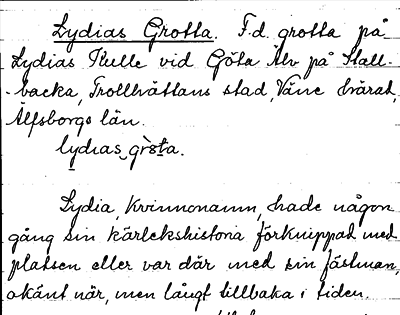 Lydias Grotta. F.d. grotta på
Lydias Kulle vid Göta Älv på Stall-
backa, Trollhättans stad, Väne härad,
Älfsborgs län.
lydias
Lydia, kvinnonamn, hade någon
gång sin kärlekshistoria förknippad med
platsen eller var där med sin fästman,
okänt när, men långt tillbaka i tiden.